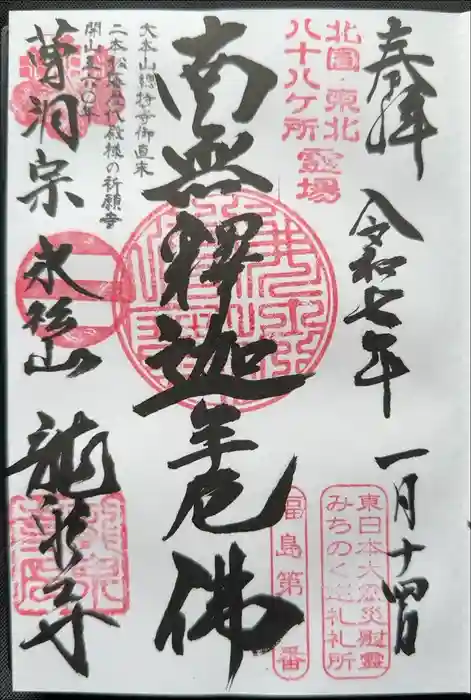 奉拝
令和七年
一月十四日
北国・東北
八十八ヶ所
霊場
東日本大震災慰霊
みちのく巡礼札所
南無釋迦牟尼佛
福島第
番
大本山總持寺御直末
二本松藩歴代殿様の祈願寺
曹洞宗
永松山
龍泉寺